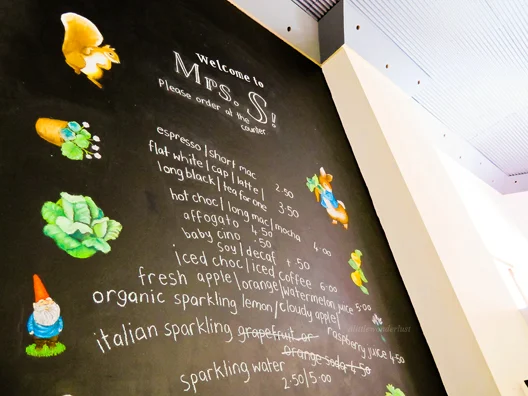 Welcome to
Mrs. S!
Please order at the
counter
espresso/short mac 2.50
flat white/cap/latte/
long black/tea for one 3.50
hot choc/long mac/mocha 4.00
affogato 4.50
baby cino .50
soy/decaf + .50
iced choc/iced coffee 6.00
fresh apple/orange/watermelon juice 5.00
organic sparkling lemon/cloudy apple/
raspberry juice 4.50
italian sparkling grapefruit or
orange soda 4.50
sparkling water
2.50/5.00